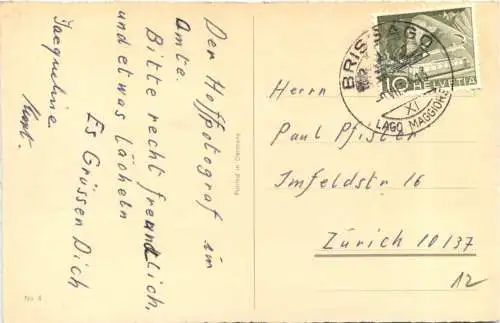 Der Hoffotograf im
Amte.
Bitte recht freundlich,
und etwas Lächeln
Es Grüssen Dich
Jacqueline
Kurt.
Printed in Germany
BRISSAGO
XI
LAGO MAGGIORE
10
HELVETIA
Herrn
Paul Pfister
Imfeldstr 16
Zürich 10/37
12